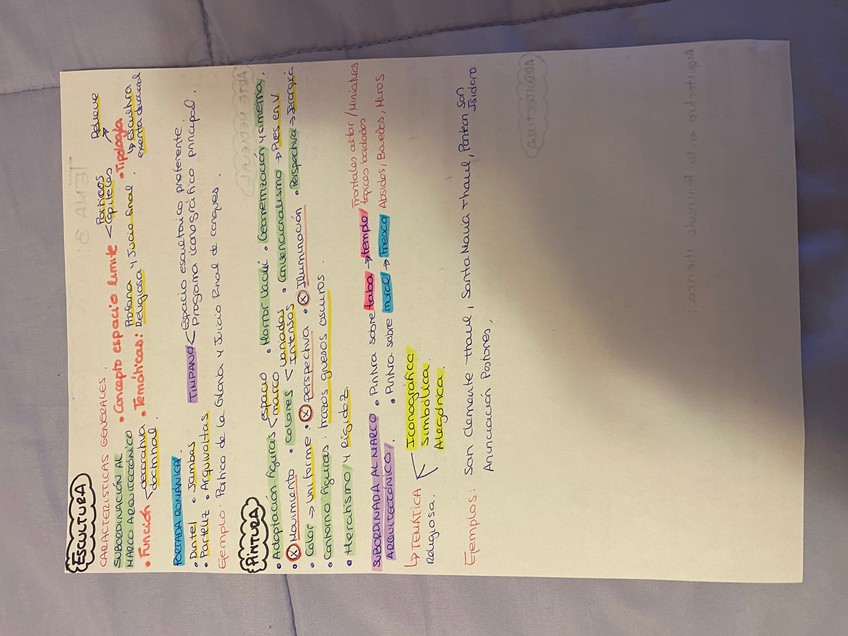 ESCULTURA
CARACTERÍSTICAS GENERALES.
SUBORDINACIÓN AL MARCO ARQUITECTÓNICO
• Concepto espacio límite < Pórticos Capiteles
• Función < decorativa docrinal.
• Temáticas: Profana y Juicio final. Religiosa
• Tipología
Relieve
↳ Escultura exenta
PORTADA ROMÁNICA
• Dintel • Jambas
• Parteluz • Arquivoltas
TÍMPANO < Espacio escultórico preferente
Programa iconográfico principal.
Ejemplo: Pórtico de la Gloria y Juicio Final de Conques.
PINTURA
• Adaptación figuras < espacio marco • Horror Vacui • Geometrización y simetría.
• X Movimiento • Colores < variados Intensos • Convencionalismo → Pies en V.
• Color → uniforme • X perspectiva • X Iluminación • Perspectiva → Jerarquía
• Contorno figuras: trazos gruesos oscuros.
• Hieratismo y Rigidez.
SUBORDINADA AL MARCO ARQUITECTÓNICO
• Pintura sobre tabla → templo / Frontales altar / Miniatures
• Pintura sobre mural → Fresco Absidos, Bóvedas, Muros
↳ TEMÁTICA religiosa.
Iconográfico
Simbólica
Alegórica.
Ejemplos: San Clemente Thaul, Santa Maria Thaul, Panteon San Isidoro
Anunciación Pastores,